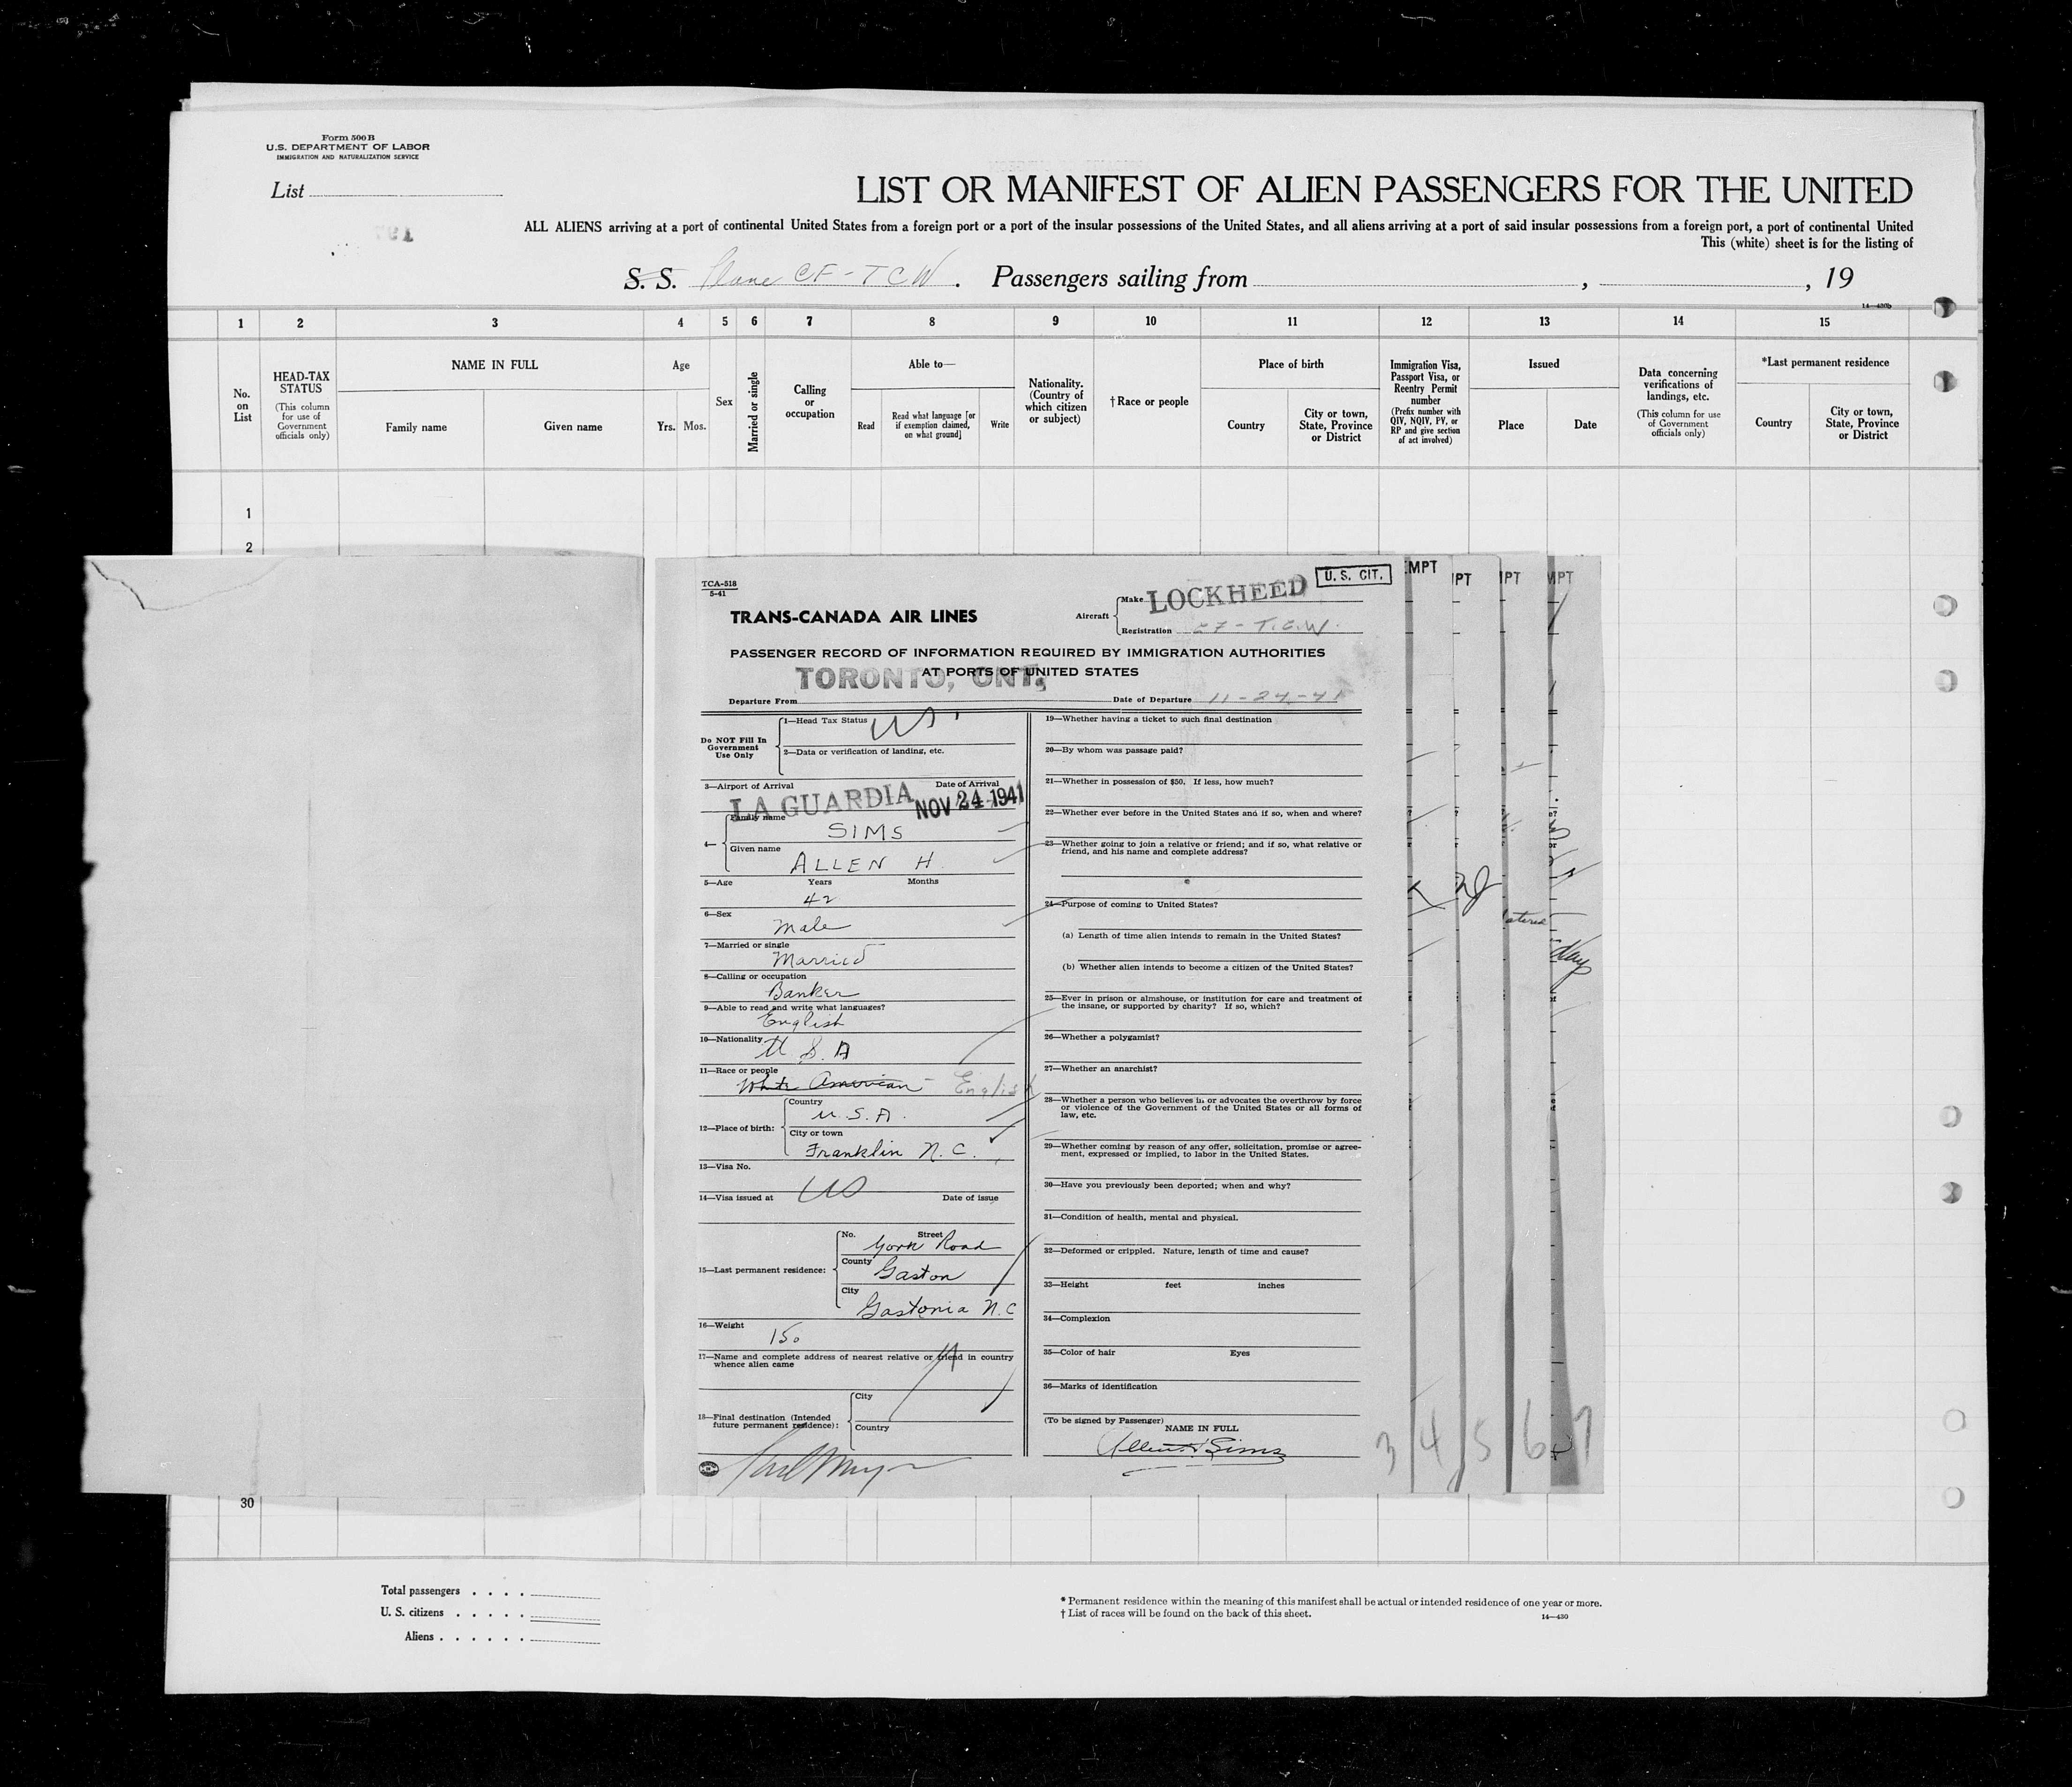 Form 500 B
U.S. DEPARTMENT OF LABOR
IMMIGRATION AND NATURALIZATION SERVICE
List
LIST OR MANIFEST OF ALIEN PASSENGERS FOR THE UNITED
ALL ALIENS arriving at a port of continental United States from a foreign port or a port of the insular possessions of the United States, and all aliens arriving at a port of said insular possessions from a foreign port, a port of continental United
This (white) sheet is for the listing of
S. S. Plane CF-TCW. Passengers sailing from , , 19
14—430b
1 2 3 4 5 6 7 8 9 10 11 12 13 14 15
No. on List
HEAD-TAX STATUS
(This column for use of Government officials only)
NAME IN FULL
Family name
Given name
Age
Yrs. Mos.
Sex
Married or single
Calling or occupation
Able to—
Read
Read what language [or if exemption claimed, on what ground]
Write
Nationality. (Country of which citizen or subject)
† Race or people
Place of birth
Country
City or town, State, Province or District
Immigration Visa, Passport Visa, or Reentry Permit number
(Prefix number with QIV, NQIV, PV, or RP and give section of act involved)
Issued
Place
Date
Data concerning verifications of landings, etc.
(This column for use of Government officials only)
*Last permanent residence
Country
City or town, State, Province or District
1
2
TCA-518
5-41
TRANS-CANADA AIR LINES
Aircraft
Make LOCKHEED
U. S. CIT.
Registration CF-T.C.W.
MPT
PT
PT
MPT
PASSENGER RECORD OF INFORMATION REQUIRED BY IMMIGRATION AUTHORITIES
AT PORTS OF UNITED STATES
TORONTO, ONT.
Departure From
Date of Departure 11-24-41
Do NOT Fill In Government Use Only
1—Head Tax Status US
2—Data or verification of landing, etc.
3—Airport of Arrival
Date of Arrival
LA GUARDIA
NOV 24 1941
4—
Family name
SIMS
Given name
ALLEN H.
5—Age Years Months
42
6—Sex
Male
7—Married or single
Married
8—Calling or occupation
Banker
9—Able to read and write what languages?
English
10—Nationality
U S. A
11—Race or people
White American - English
12—Place of birth:
Country
U. S. A.
City or town
Franklin N. C.
13—Visa No.
14—Visa issued at US Date of issue
15—Last permanent residence:
No. Street
York Road
County
Gaston
City
Gastonia N.C
16—Weight
150
17—Name and complete address of nearest relative or friend in country whence alien came
18—Final destination (Intended future permanent residence):
City
Country
19—Whether having a ticket to such final destination
20—By whom was passage paid?
21—Whether in possession of $50. If less, how much?
22—Whether ever before in the United States and if so, when and where?
23—Whether going to join a relative or friend; and if so, what relative or
friend, and his name and complete address?
24—Purpose of coming to United States?
(a) Length of time alien intends to remain in the United States?
(b) Whether alien intends to become a citizen of the United States?
25—Ever in prison or almshouse, or institution for care and treatment of
the insane, or supported by charity? If so, which?
26—Whether a polygamist?
27—Whether an anarchist?
28—Whether a person who believes in or advocates the overthrow by force
or violence of the Government of the United States or all forms of
law, etc.
29—Whether coming by reason of any offer, solicitation, promise or agree-
ment, expressed or implied, to labor in the United States.
30—Have you previously been deported; when and why?
31—Condition of health, mental and physical.
32—Deformed or crippled. Nature, length of time and cause?
33—Height feet inches
34—Complexion
35—Color of hair Eyes
36—Marks of identification
(To be signed by Passenger)
NAME IN FULL
Allen H Sims
3 4 5 6 7
30
Total passengers
U. S. citizens
Aliens
* Permanent residence within the meaning of this manifest shall be actual or intended residence of one year or more.
† List of races will be found on the back of this sheet.
14—430